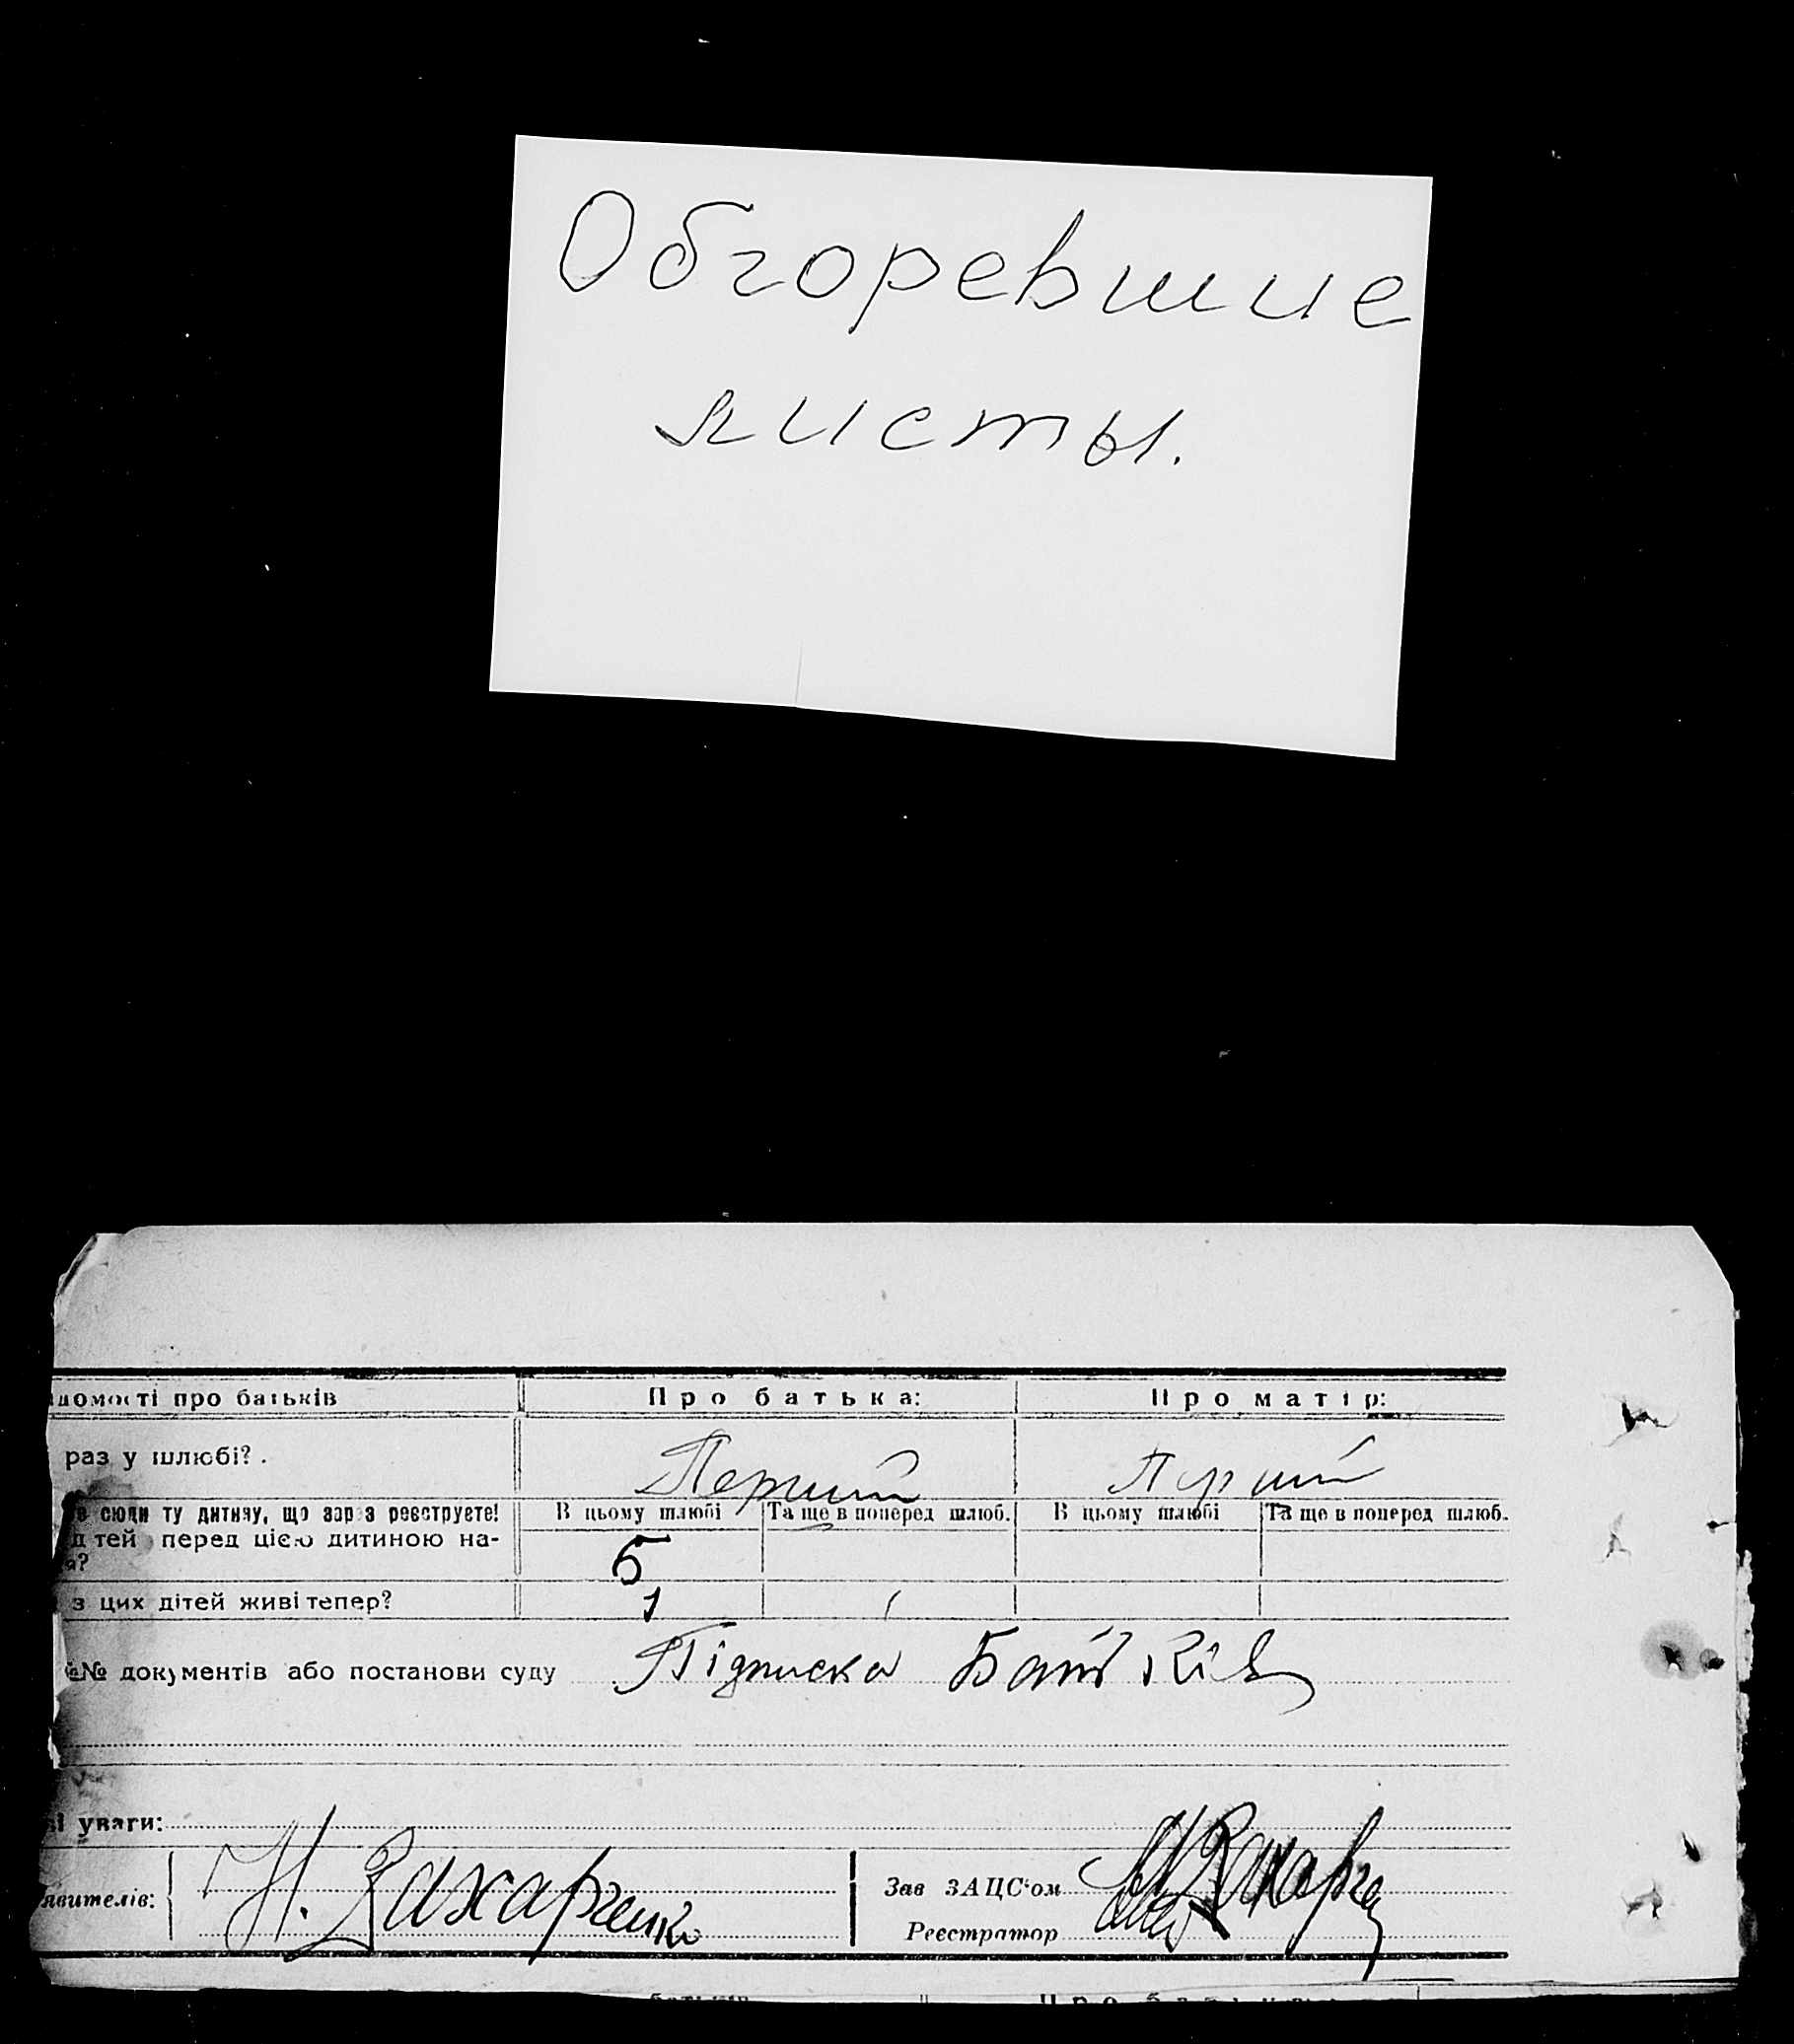 Обгоревшие
листы.
домості про батьків Про батька: Про матір:
раз у шлюбі? . Перший Перший
сюди ту дитину, що зараз реєструєте! В цьому шлюбі Та ще в поперед шлюб. В цьому шлюбі Та ще в поперед шлюб.
д тей перед цією дитиною на- 5
а?
з цих дітей живі тепер? 1
№ документів або постанови суду Підписка Батьків
уваги:
явителів: Н. Захарченко Зав ЗАЦС'ом
Реєстратор